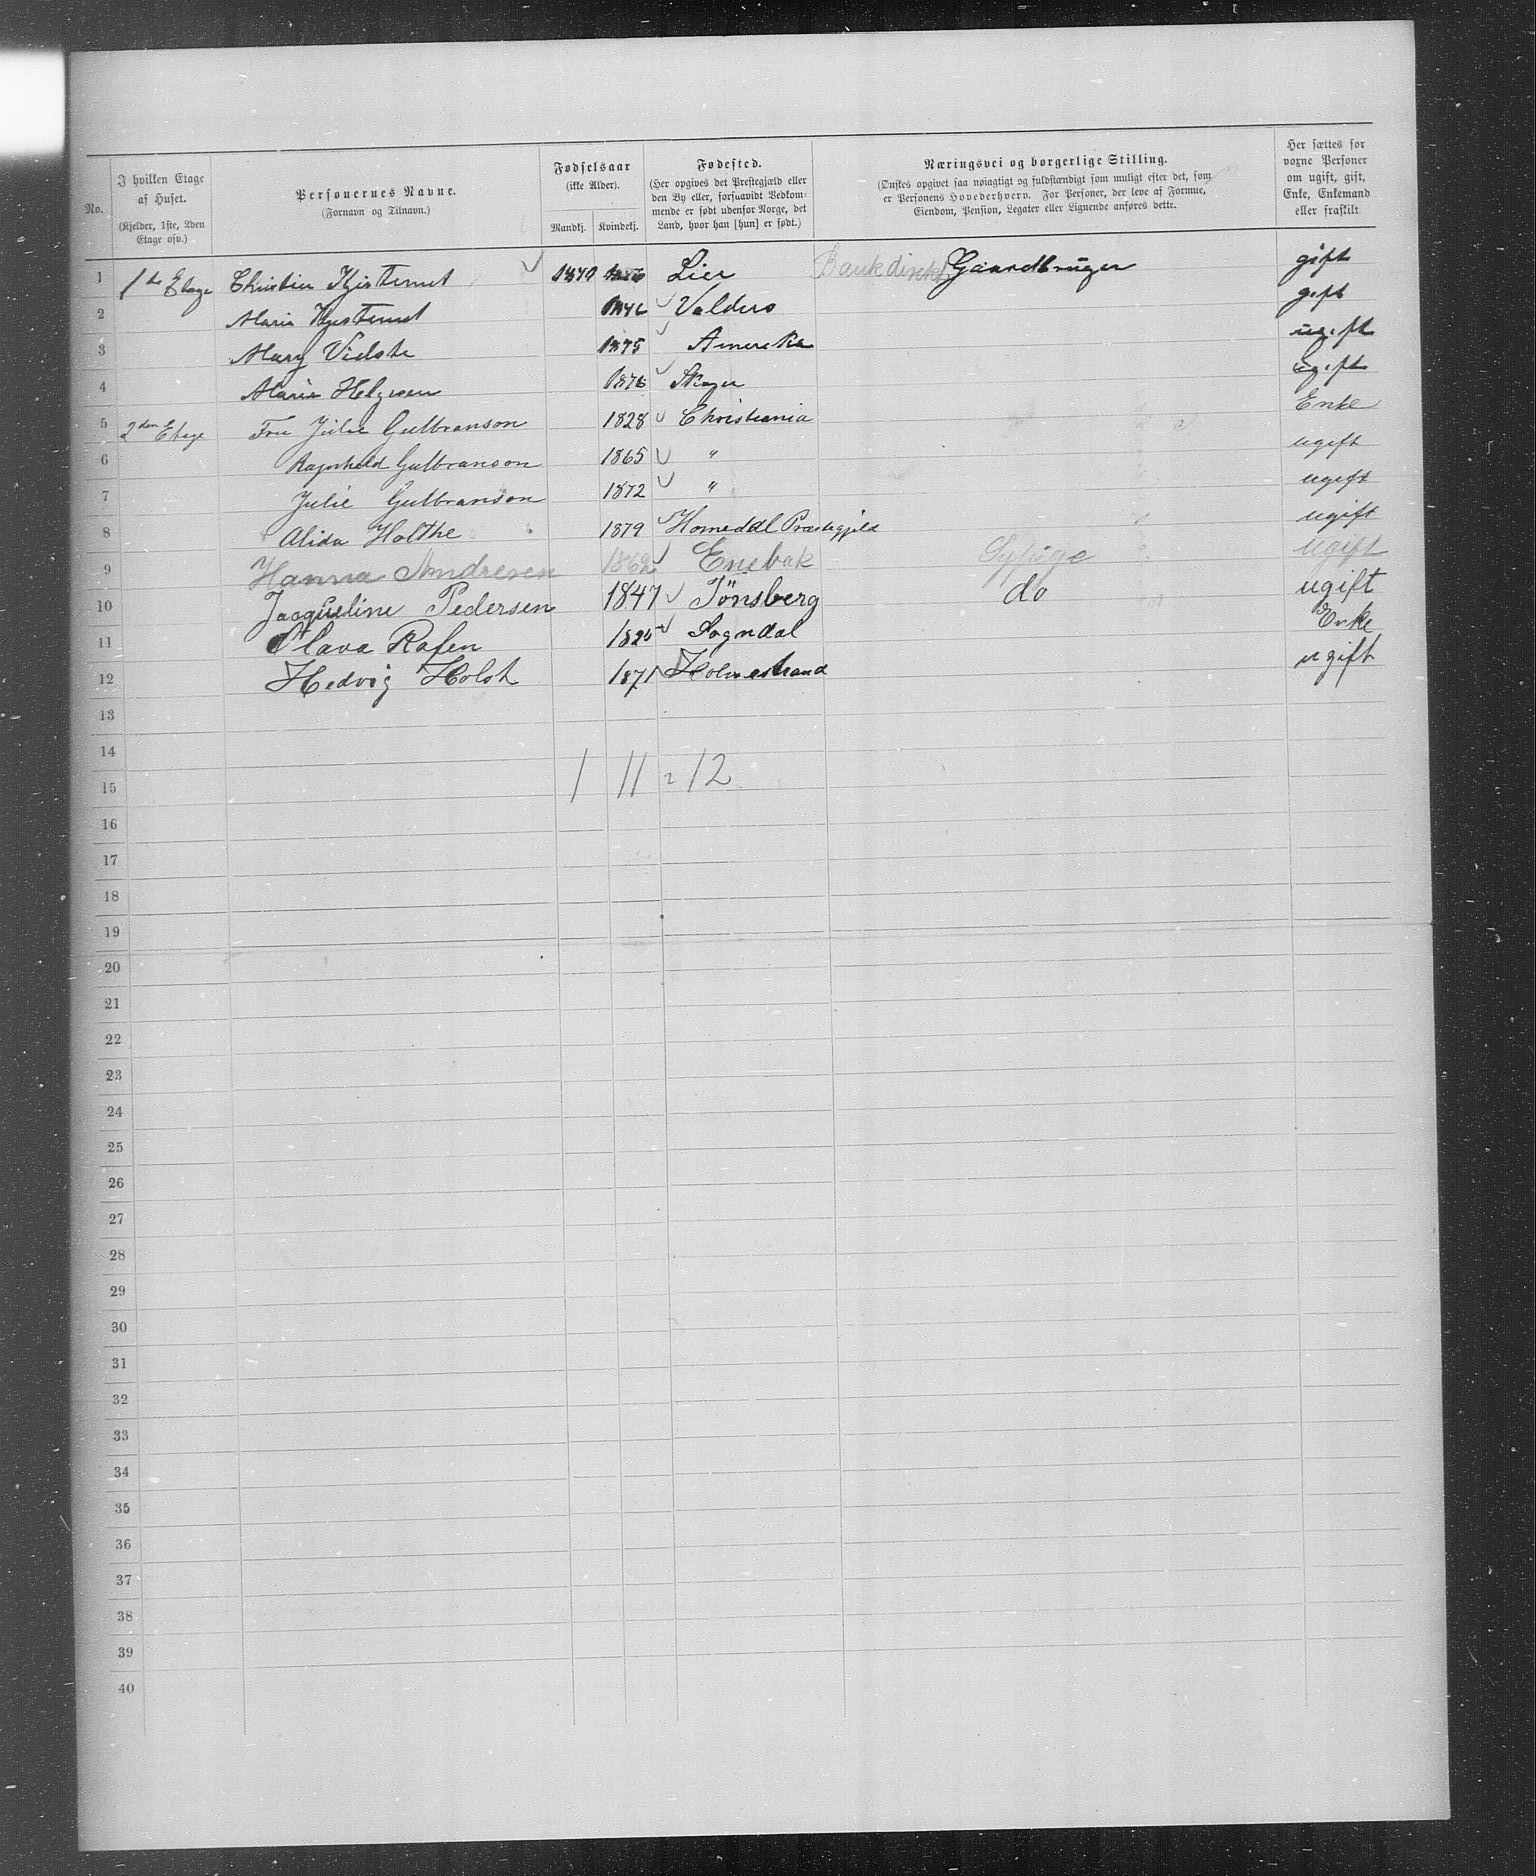 No.
I hvilken Etage af Huset.
(Kjelder, 1ste, 2den Etage osv.)
Personernes Navne.
(Fornavn og Tilnavn.)
Fødselsaar
(ikke Alder).
Mandkj. Kvindekj.
Fødested.
(Her opgives det Prestegjæld eller
den By eller, forsaavidt Vedkom-
mende er født udenfor Norge, det
Land, hvor han [hun] er født.)
Næringsvei og borgerlige Stilling.
(Ønskes opgivet saa nøiagtigt og fuldstændigt som muligt efter det, som
er Personens Hovederhverv. For Personer, der leve af Formue,
Eiendom, Pension, Legater eller Lignende anføres dette.
Her sættes for
voxne Personer
om ugift, gift,
Enke, Enkemand
eller fraskilt
1 1ste Etage Christian 1840 Lier Bankdirektør Gaardbruger gift
2 Maria 1846 Valders gift
3 Mary 1875 Amereka ugift
4 Marie Helgesen 1876 ugift
5 2den Etage Fru Julie Gulbranson 1828 Christiania Enke
6 Ragnhild Gulbranson 1865 " ugift
7 Julie Gulbranson 1872 " ugift
8 Alida Holthe 1879 Homedal Præstegjeld ugift
9 Hanna Andresen 1862 Enebak Sypige ugift
10 Jacqueline Pedersen 1847 Tönsberg do ugift
11 Olava Rafen Sogndal Enke
12 Hedvig Holst 1871 Holmestrand ugift
13
14
1 11 = 12
15
16
17
18
19
20
21
22
23
24
25
26
27
28
29
30
31
32
33
34
35
36
37
38
39
40